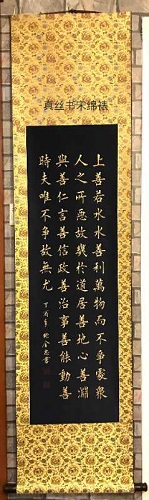 真丝书宋绵裱
上善若水水善利萬物而不爭處衆
人之所惡故幾於道居善地心善淵
與善仁言善信政善治事善能動善
時夫唯不爭故無尤
丁酉年